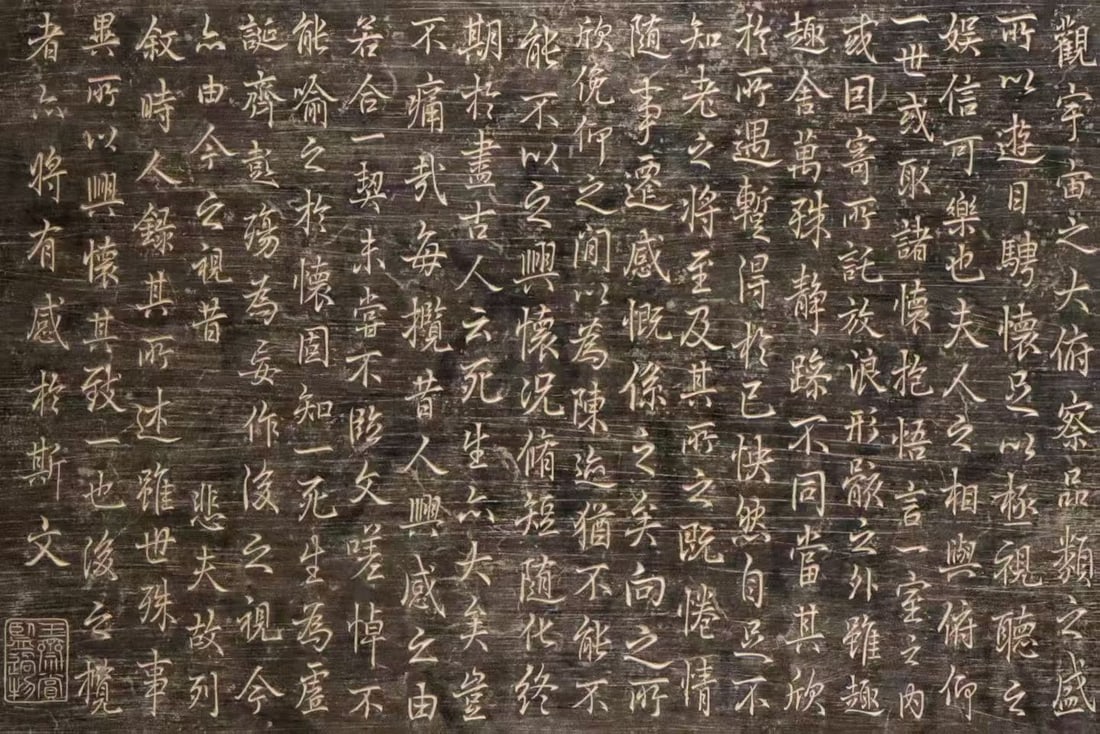 觀宇宙之大俯察品類之盛
所以遊目騁懷足以極視聽之
娛信可樂也夫人之相與俯仰
一世或取諸懷抱悟言一室之內
或因寄所託放浪形骸之外雖趣
趣舍萬殊静躁不同當其欣
於所遇暫得於己快然自足不
知老之將至及其所之既惓情
随事遷感慨係之矣向之所
欣俛仰之閒以為陳迹猶不能不
能不以之興懷况脩短随化終
期於盡古人云死生亦大矣豈
不痛哉每攬昔人興感之由
若合一契未嘗不臨文嗟悼不
能喻之於懷固知一死生為虛
誕齊彭殤為妄作後之視今
亦由今之視昔 悲夫故列
敘時人錄其所述雖世殊事
異所以興懷其致一也後之攬
者亦將有感於斯文